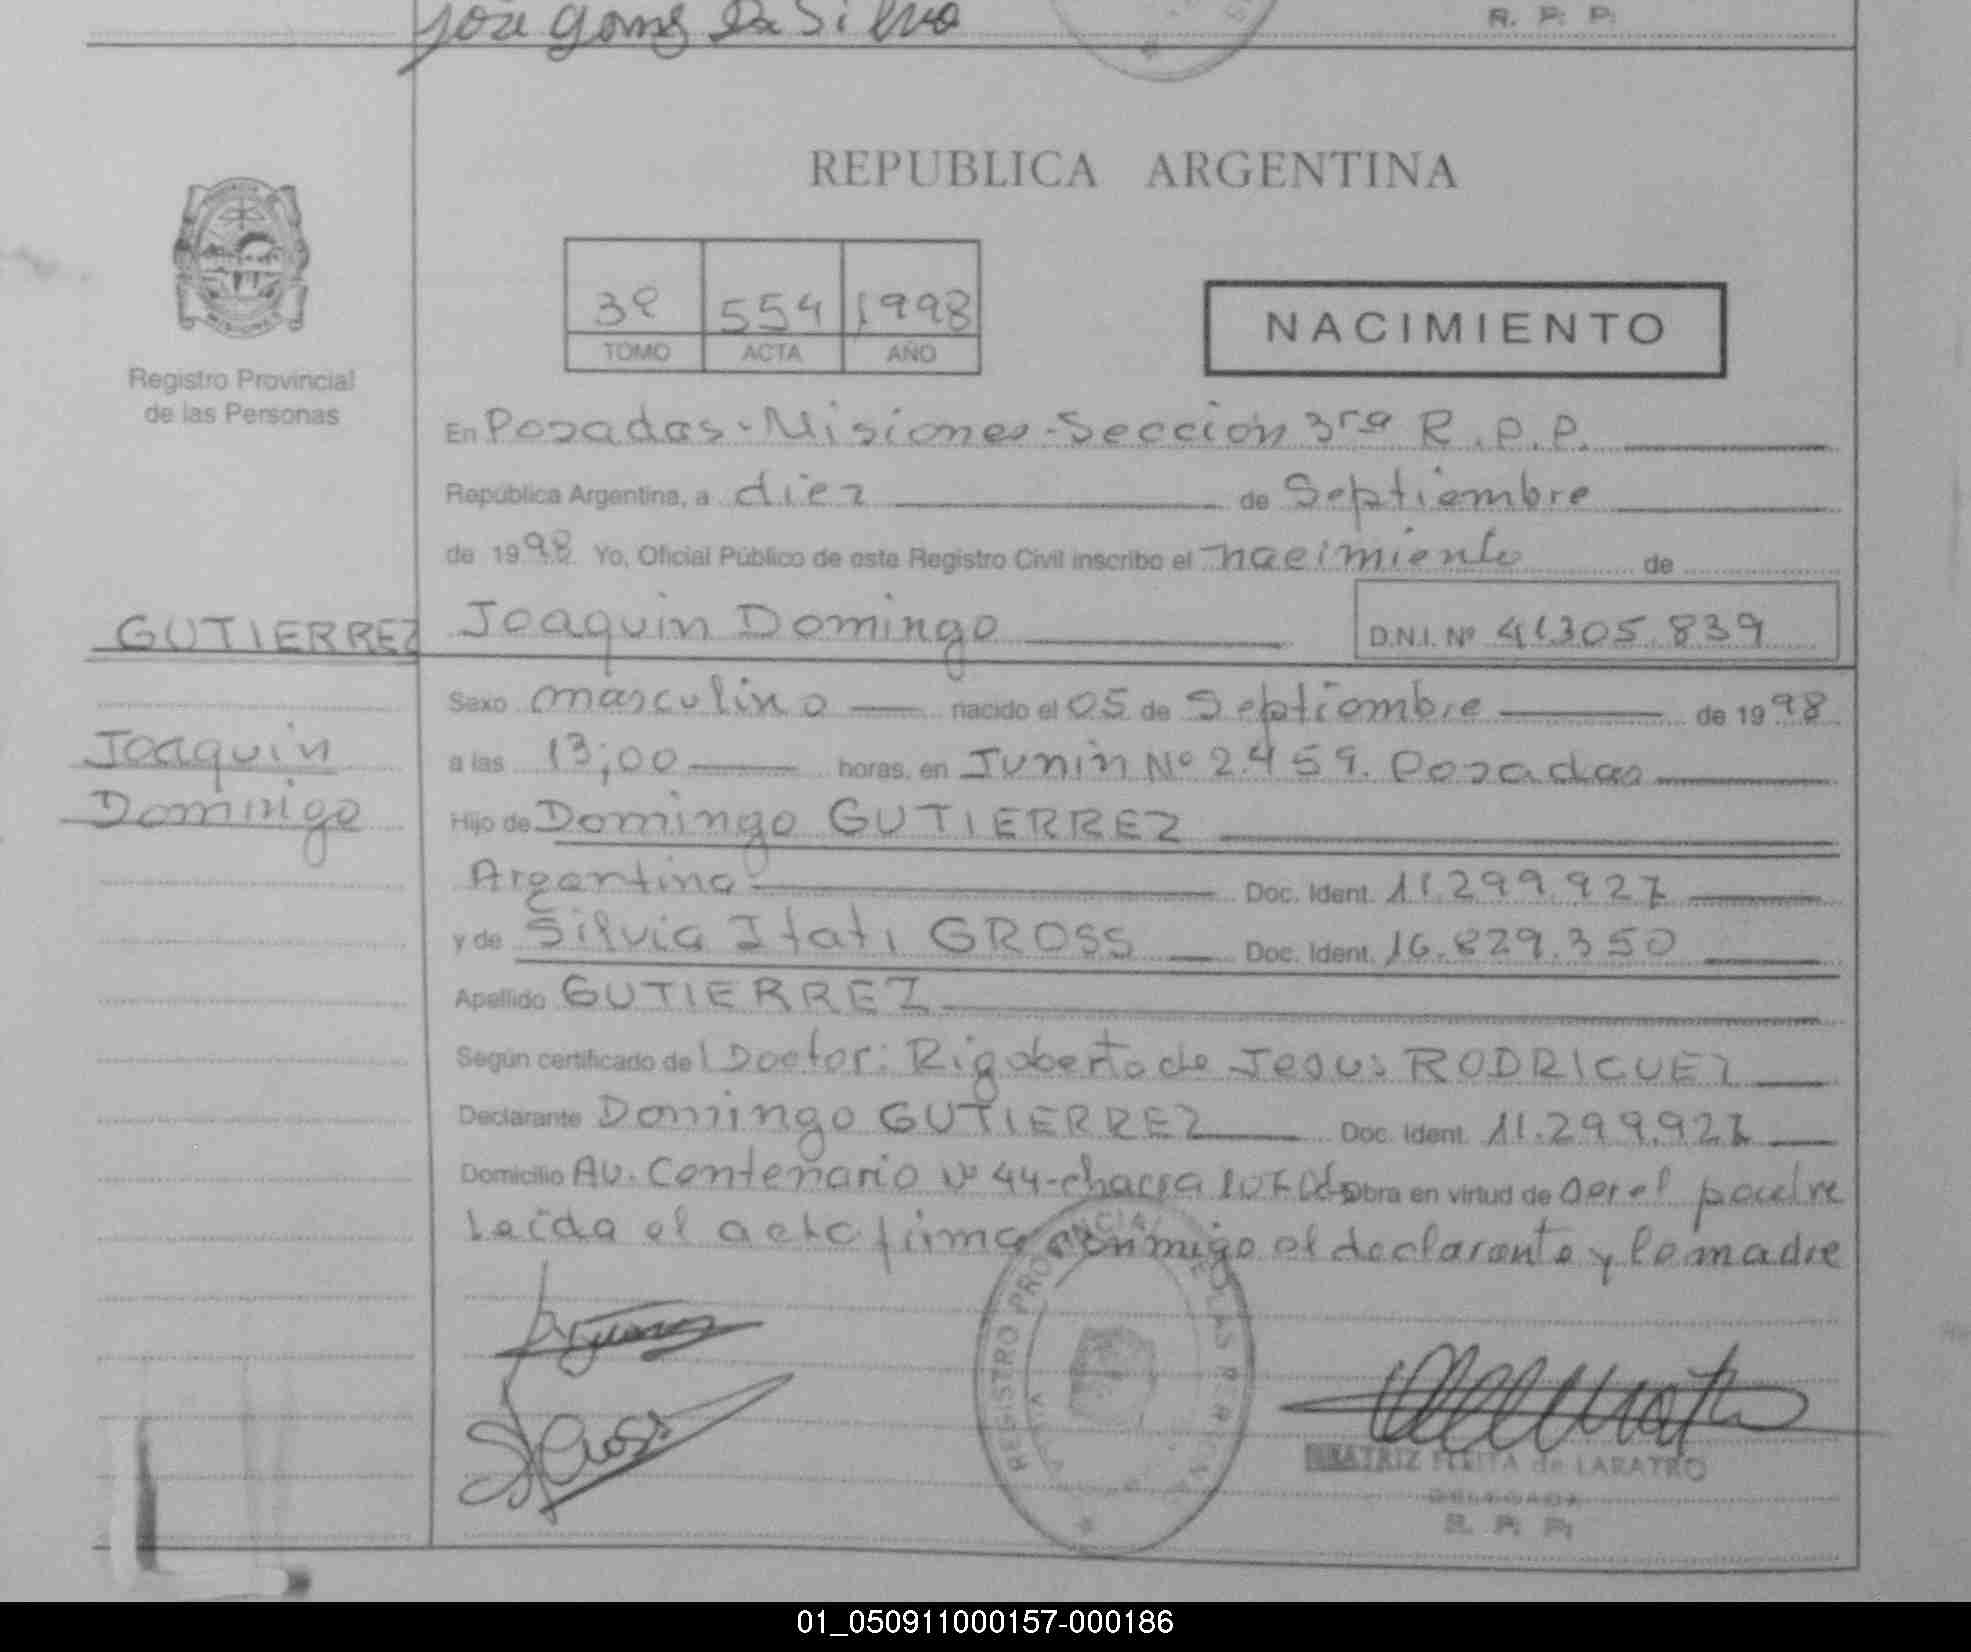 José Gomz Da Silva
R. P. P.
REPUBLICA ARGENTINA
3º 554 1998
TOMO ACTA AÑO
NACIMIENTO
Registro Provincial
de las Personas
En Posadas-Misiones-Sección 3ra R.P.P.
República Argentina, a diez de Septiembre
de 1998 Yo, Oficial Público de este Registro Civil inscribo el nacimiento de
GUTIERREZ
Joaquin Domingo
D.N.I. Nº 41.305.839
Sexo masculino nacido el 05 de Septiembre de 1998
Joaquin
Domingo
a las 13;00 horas, en Junin Nº 2.459. Posadas
Hijo de Domingo GUTIERREZ
Argentino Doc. Ident. 11.299.927
y de Silvia Itati GROSS Doc. Ident. 16.829.350
Apellido GUTIERREZ
Según certificado del Doctor: Rigoberto de Jesus RODRIGUEZ
Declarante Domingo GUTIERREZ Doc. Ident. 11.299.927
Domicilio Av. Centenario Nº 44-chacra Obra en virtud de ser el padre
Leída el acta firma conmigo el declarante y la madre
REGISTRO PROVINCIAL DE LAS PERSONAS
BEATRIZ de LABATRO
DELEGADA
R. P. P.
01_050911000157-000186